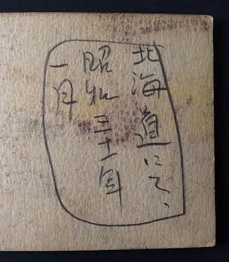 北海道にて、
昭和三十一年
一月